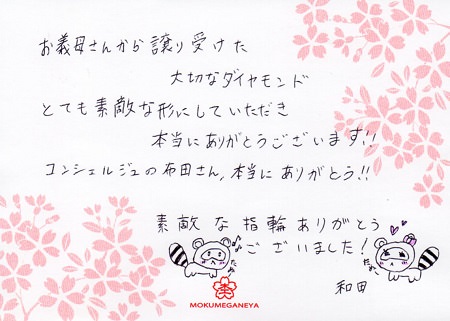 お義母さんから譲り受けた
大切なダイヤモンド
とても素敵な形にしていただき
本当にありがとうございます!!
コンシェルジュの布田さん、本当にありがとう!!
素敵な指輪ありがとう
ございました!
和田
MOKUMEGANEYA